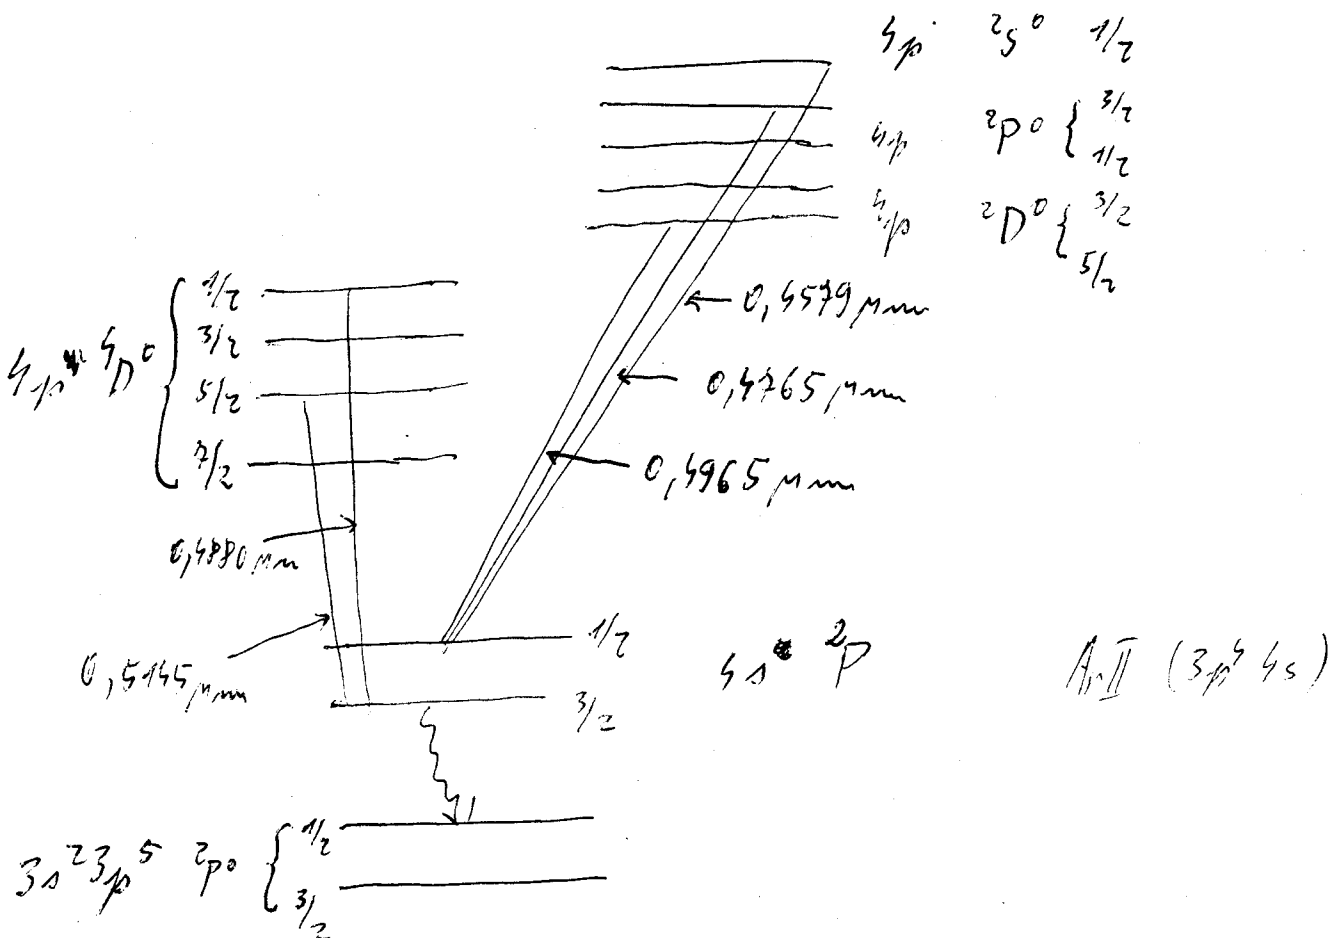 4p ²S⁰ 1/2
4p ²P⁰ { 3/2
1/2
4p ²D⁰ { 3/2
5/2
4p ⁴D⁰ { 1/2
3/2
5/2
7/2
← 0,4579 μm
0,4765 μm
0,4965 μm
0,4880 μm
0,5145 μm
1/2
3/2
4s ²P
Ar II (3p⁴ 4s)
3s² 3p⁵ ²P⁰ { 1/2
3/2